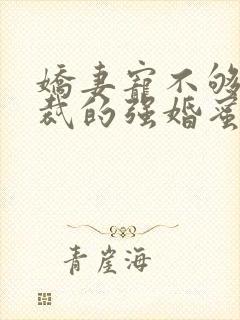 嬌妻寵不够
裁的强婚蜜
青崖海